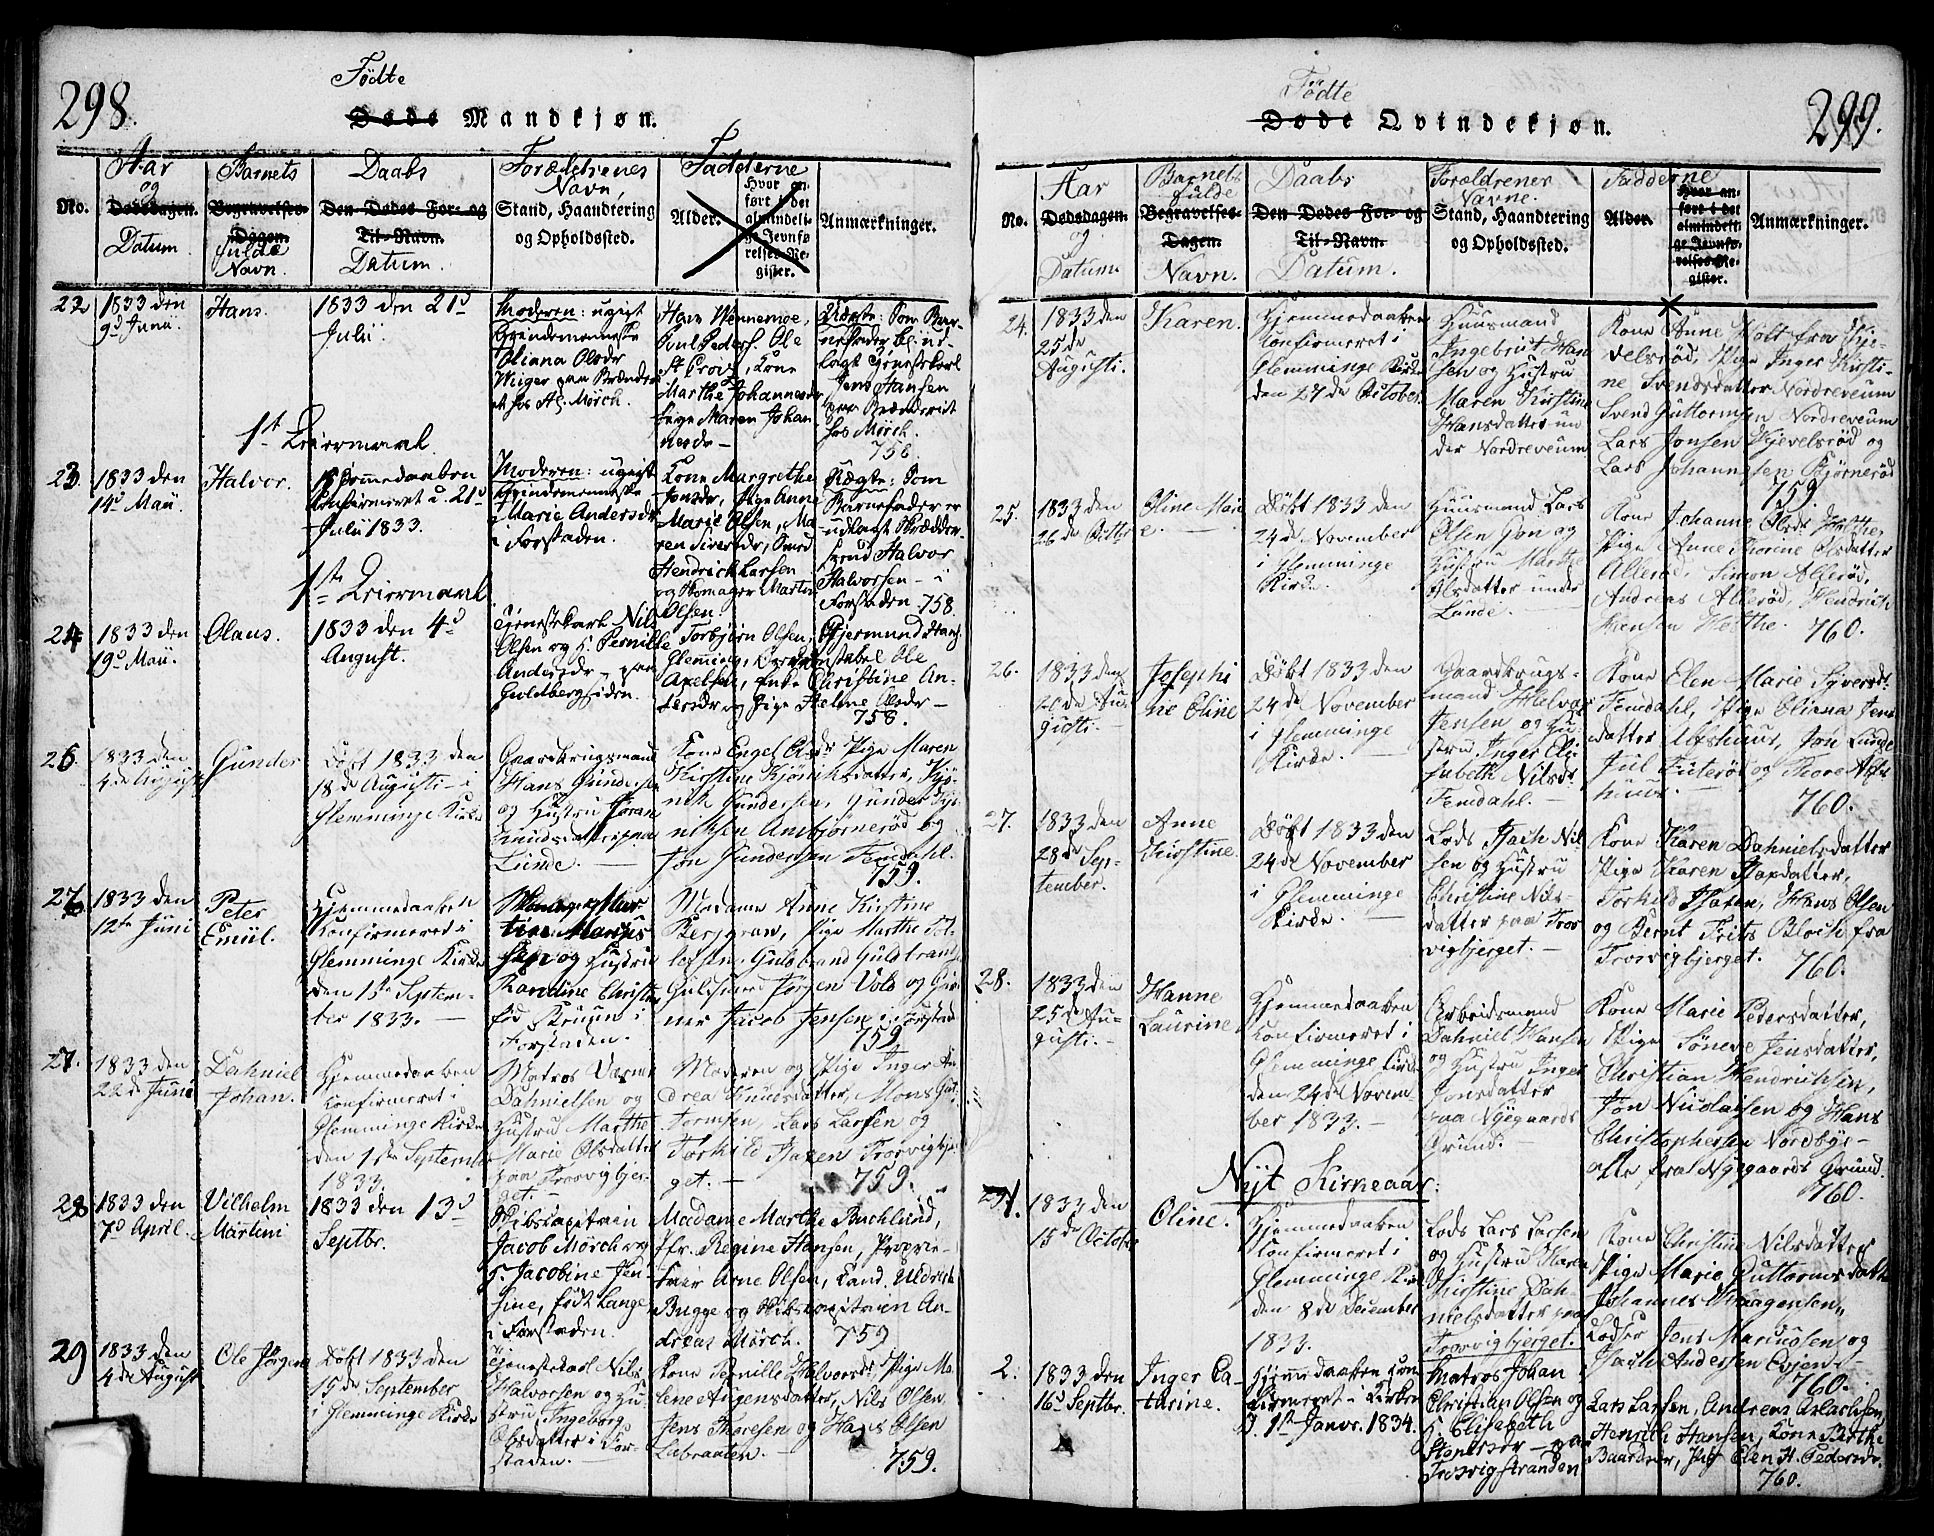 298.
Fødte
Døde Mandkjøn.
No.
Aar
og
Dødsdagen.
Datum.
Barnets
Begravelses-
Dagen.
fulde
Navn.
Daabs
Den Dødes For- og
Til-Navn.
Datum.
Forældrenes
Navn,
Stand, Haandtering
og Opholdssted.
Fadderne
Alder.
Hvor an-
ført i det
almindeli-
ge Jevnfø-
relses-Re-
gister.
Anmærkninger.
22
1833 den
9d Junii.
Hans.
1833 den 21d
Julii
Moderen: ugigt
Qvindemenneske
Oliana Olsdr
hos Aj. Mörch.
Ole
Kone
Marthe Johannesdr
Pige Maren Johan
nesdr –
Uægte: Som Bar-
nefader er ud-
lagt Tjenestekarl
Jens Hansen
hos Mörch.
758.
23.
1833 den
14d Maii.
Halvor.
Hjemmedaaben
Confirmeret d. 21d
Julii 1833.
Moderen: ugigt
Qvindemenneske
Marie Andersdr
i Forstaden.
Kone Margrethe
Jonsdr, Pige Anne
Marie Olsen, Ma-
ren Siversdr, Smed
Hendrich Larsen
og Skomager Morten
Olsen.
Uægte: Som
Barnefader er
udlagt Skrædder-
svend Halvor
Halvorsen – i
Forstaden 758.
24
1833 den
19d Maii.
Olaus.
1833 den 4d
August.
Tjenestekarl Nils
Olsen og H. Pernille
Andersdr – paa
Guldbergsiden.
Torbjørn Olsen, Gjermund Hans.
Ole
Axelsen, Enke Christine An-
dersdr og Pige Helene Olsdr –
758.
1833 den
4de Augusti
Gunder
Döbt 1833 den
18de Augusti – i
Glemminge Kirke
Gaardbrugsmand
Hans Gundersen
og Hustru Joran
Knudsdatter paa
Lunde. –
Kone Engel Olsdr Pige Maren
Kirstine Kjönichsdatter, Kjö-
nik Gundersen, Gunder Kjö-
niksen Ambjörneröd og
Jon Gundersen Femdahl.
759.
1833 den
12te Juni
Peter
Emiil.
Hjemmedaaben
Konfirmeret i
Glemminge Kirke
den 15de Septem-
ber 1833. –
og Hustru
Randine Christine
föd Bruun i
Forstaden.
Madame Anne Kirstine
Pige Marthe Tol-
lefsen, Guldbrand Guldbrands
Guldsmed Jörgen Vold og
Jacob Jensen i Forstad
759
27.
1833 den
22de Juni
Dahniel
Johan.
Hjemmedaaben
Confirmeret i
Glemminge Kirke
den 15de September
1833.
Matros
Dahnielsen og
Hustru Marthe
Marie Olsdatter
paa Trosvigbjer-
get. –
Moderen og Pige Inger An-
drea Knudsdatter, Mons Gut-
tormsen, Lars Larsen og
Torkild Isaxen Trosvigbjer
get. –
759.
28
1833 den
7d April.
Vilhelm
Martini
1833 den 13d
Septbr.
Skibscapitain
Jacob Mörch og
H. Jacobine Jen-
sine, född Lange
i Forstaden.
Madame Marthe Bachlund,
Jfr. Regine Hansen, Proprie-
tair Arne Olsen, Cand. Uldrich
Bugge og Skibscapitain An-
dreas Mörch.
759
29
1833 den
4de August
Ole Jörgen
Döbt 1833 den
15de September
i Glemminge Kirke
Tjenestekarl Nils
Halvorsen og Hu-
stru Ingeborg
Olsdatter i For-
staden. –
Kone Pernille Halvorsdr, Pige Ma-
lene Augensdatter, Nils Olsen
Jens Thoresen og Hans Olsen
Labraaten. –
759.
1st Qviermaal
1ste Qviermaal
299.
Fødte
Døde Qvindekjøn.
No.
Aar
Dødsdagen.
og
Datum
Barnets
fulde
Begravelses-
Dagen.
Navn.
Daabs
Den Dødes For- og
Til-Navn.
Datum.
Forældrenes
Navne.
Stand, Haandtering
og Opholdssted.
Fadderne
Alder.
Hvor an-
ført i det
almindeli-
ge Jevnfø-
relses-Re-
gister.
Anmærkninger.
24.
1833 den
25de
Augusti.
Karen.
Hjemmedaaben
Confirmeret i
Glemminge Kirke
den 27de October.
Huusmand
Ingebrict Han-
sen og Hustru
Maren Kirstine
Hansdatter un
der Nordreveum
Kone Anne Holt fra Kje-
velsröd, Pige Inger Kirsti-
ne Svendsdatter Nordreveum
Svend Guttormsen Nordreveum
Lars Jonsen Kjevelsröd og
Lars Johannesen Bjørneröd
759.
25.
1833 den
26de Octbr
Oline Mari
e –
Döbt 1833 den
24de November
i Glemminge
Kirke.
Huusmand Lars
Olsen Gon og
Hustru Marthe
Olsdatter under
Lunde. –
Kone Johanne Olsdr Holthe,
Pige Anne Thorine Olsdatter
Alleröd, Simon Alleröd,
Andreas Alleröd, Hendrich
Hansen Holthe. 760.
26.
1833 den
Au-
gusti. –
Josephi
ne Oline
Döbt 1833 den
24de November
i Glemminge
Kirke. –
Gaardbrugs-
mand Halvor
Jensen og Hu-
stru Inger Eli-
sabeth Nilsdr
Femdahl. –
Kone Elen Marie Syversdr
Femdahl, Pige Oliana Jens
datter Alshuus, Jon Lunde
Juteröd og Thore Als
huus. –
760.
27.
1833 den
28de Sep-
tember.
Anne
Kirstine.
Döbt 1833 den
24de November
i Glemminge
Kirke. –
Lods Isach Nil-
sen og Hustru
Christine Nils-
datter paa Tros
vigbjerget. –
Kone Karen Dahnielsdatter
Pige Karen Isaxdatter,
Torkild Isaxen, Hans Olsen
og Bernt Frits Bloch fra
Trosvigbjerget. 760.
28.
1833 den
25de Au-
gusti. –
Hanne
Laurine
Hjemmedaaben
Confirmeret i
Glemminge Kirke
den 24de Novem
ber 1833. –
Arbeidsmand
Dahniel Hansen
og Hustru Inger
Jonsdatter
paa Nyegaards
Grund. –
Kone Marie Pedersdatter,
Pige Söneve Jensdatter,
Christian Hendrichsen,
Jon Nicolaisen og Hans
Christophersen Nordbye –
alle fra Nyegaards Grund.
760.
Nyt Kirkeaar:
1.
1833 den
15de October
Oline.
Hjemmedaaben
Confirmeret i
Glemminge Kirke
den 8de December
1833.
Lods Lars Larsen
og Hustru Karen
Kirstine Dah-
nielsdatter paa
Trosvigbjerget.
Kone Christine Nilsdatter
Pige Marie Guttormsdatter
Johannes Haagensen,
Lodser Jens Marcusen og
Isach Andersen Evjen. –
760.
2.
1833 den
16d Septbr.
Inger Ca-
tarine.
Hjemedaaben Con-
firmeret i Kirken
d. 1st Janvr. 1834.
Matros Johan
Christian Olsen og
H. Elisabeth
– paa
Trosvigstranden
Lars Larsen, Andreas Aslachsen
Henrich Hansen, Kone Berthe
Baardsdr, Pig Elen H. Pedersdr.
760.